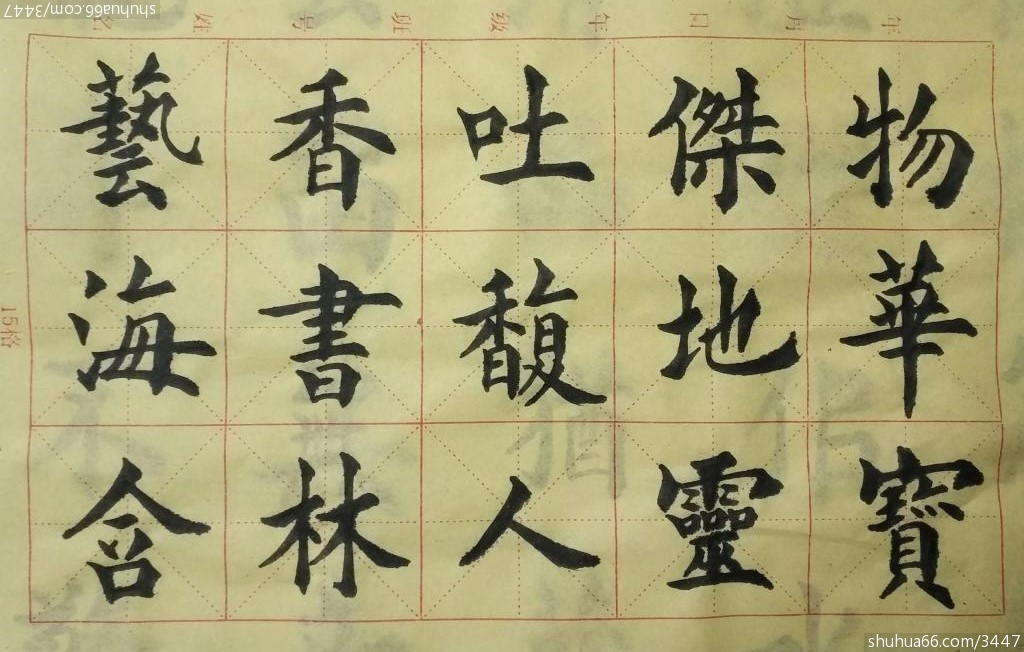 shuhua66.com/3447
年 月 日 年级 班 号 姓名
藝海含
香書林
吐馥人
傑地靈
物華寶
15格
shuhua66.com/3447